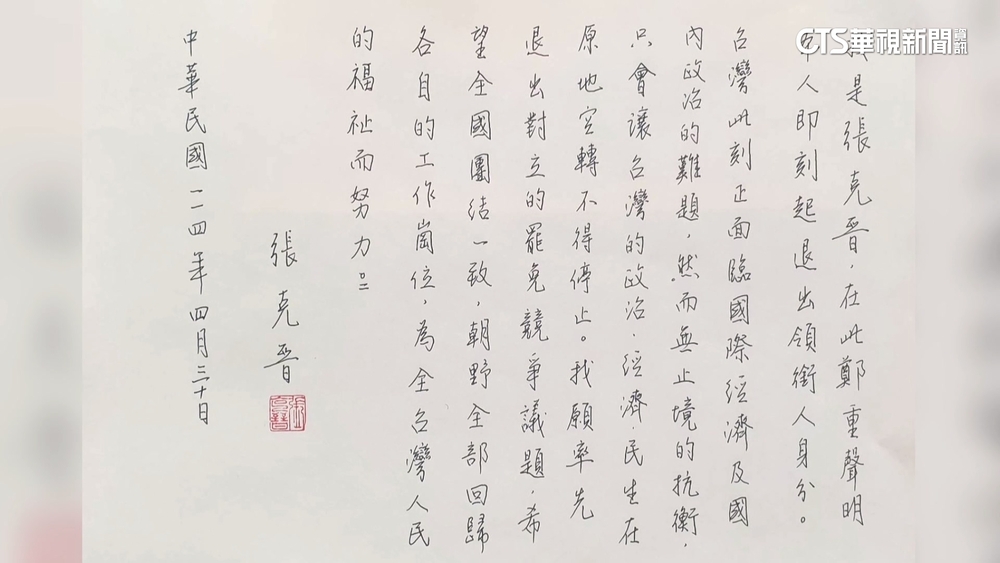 CTS華視新聞資訊
我是張克晉，在此鄭重聲明
本人即刻起退出領銜人身分。
台灣此刻正面臨國際經濟及國
內政治的難題，然而無止境的抗衡，
只會讓台灣的政治．經濟．民生在
原地空轉不得停止。我願率先
退出對立的罷免競爭議題，希
望全國團結一致，朝野全部回歸
各自的工作崗位，為全台灣人民
的福祉而努力。
張克晉
中華民國一一四年四月三十日